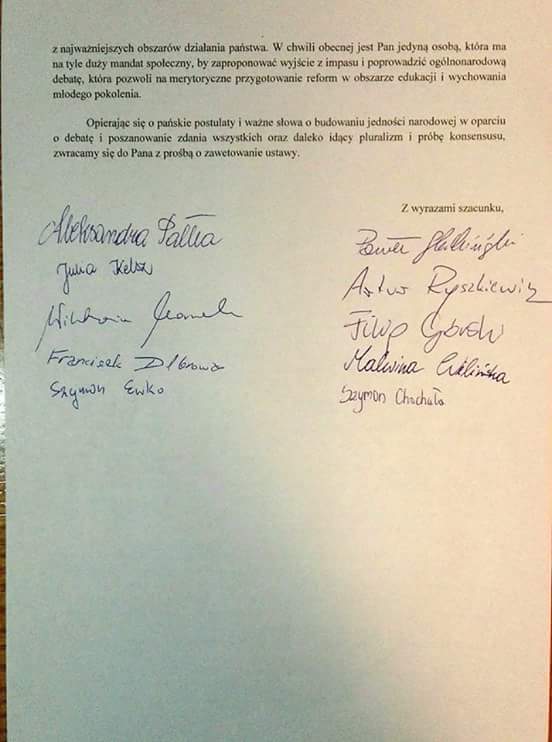 z najważniejszych obszarów działania państwa. W chwili obecnej jest Pan jedyną osobą, która ma
na tyle duży mandat społeczny, by zaproponować wyjście z impasu i poprowadzić ogólnonarodową
debatę, która pozwoli na merytoryczne przygotowanie reform w obszarze edukacji i wychowania
młodego pokolenia.
Opierając się o pańskie postulaty i ważne słowa o budowaniu jedności narodowej w oparciu
o debatę i poszanowanie zdania wszystkich oraz daleko idący pluralizm i próbę konsensusu,
zwracamy się do Pana z prośbą o zawetowanie ustawy.
Z wyrazami szacunku,
Aleksandra Pałka
Julia
Wiktoria
Franciszek
Szymon Ewko
Paweł
Artur Ryszkiewicz
Filip Górski
Malwina
Szymon Chachuła